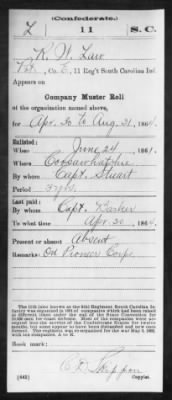 (Confederate.)
L 11 S.C.
R. W. Law
Pvt., Co. E, 11 Reg't South Carolina Inf.
Appears on
Company Muster Roll
of the organization named above,
for Apr. 30 to Aug. 31, 1864.
Enlisted:
When June 24, 1861.
Where Coosawhatchie
By whom Capt. Stuart
Period 3 yrs.
Last paid:
By whom Capt. Barker
To what time Apr. 30, 1864.
Present or absent Absent
Remarks: On Pioneer Corps
Book mark:
(642) Copyist.